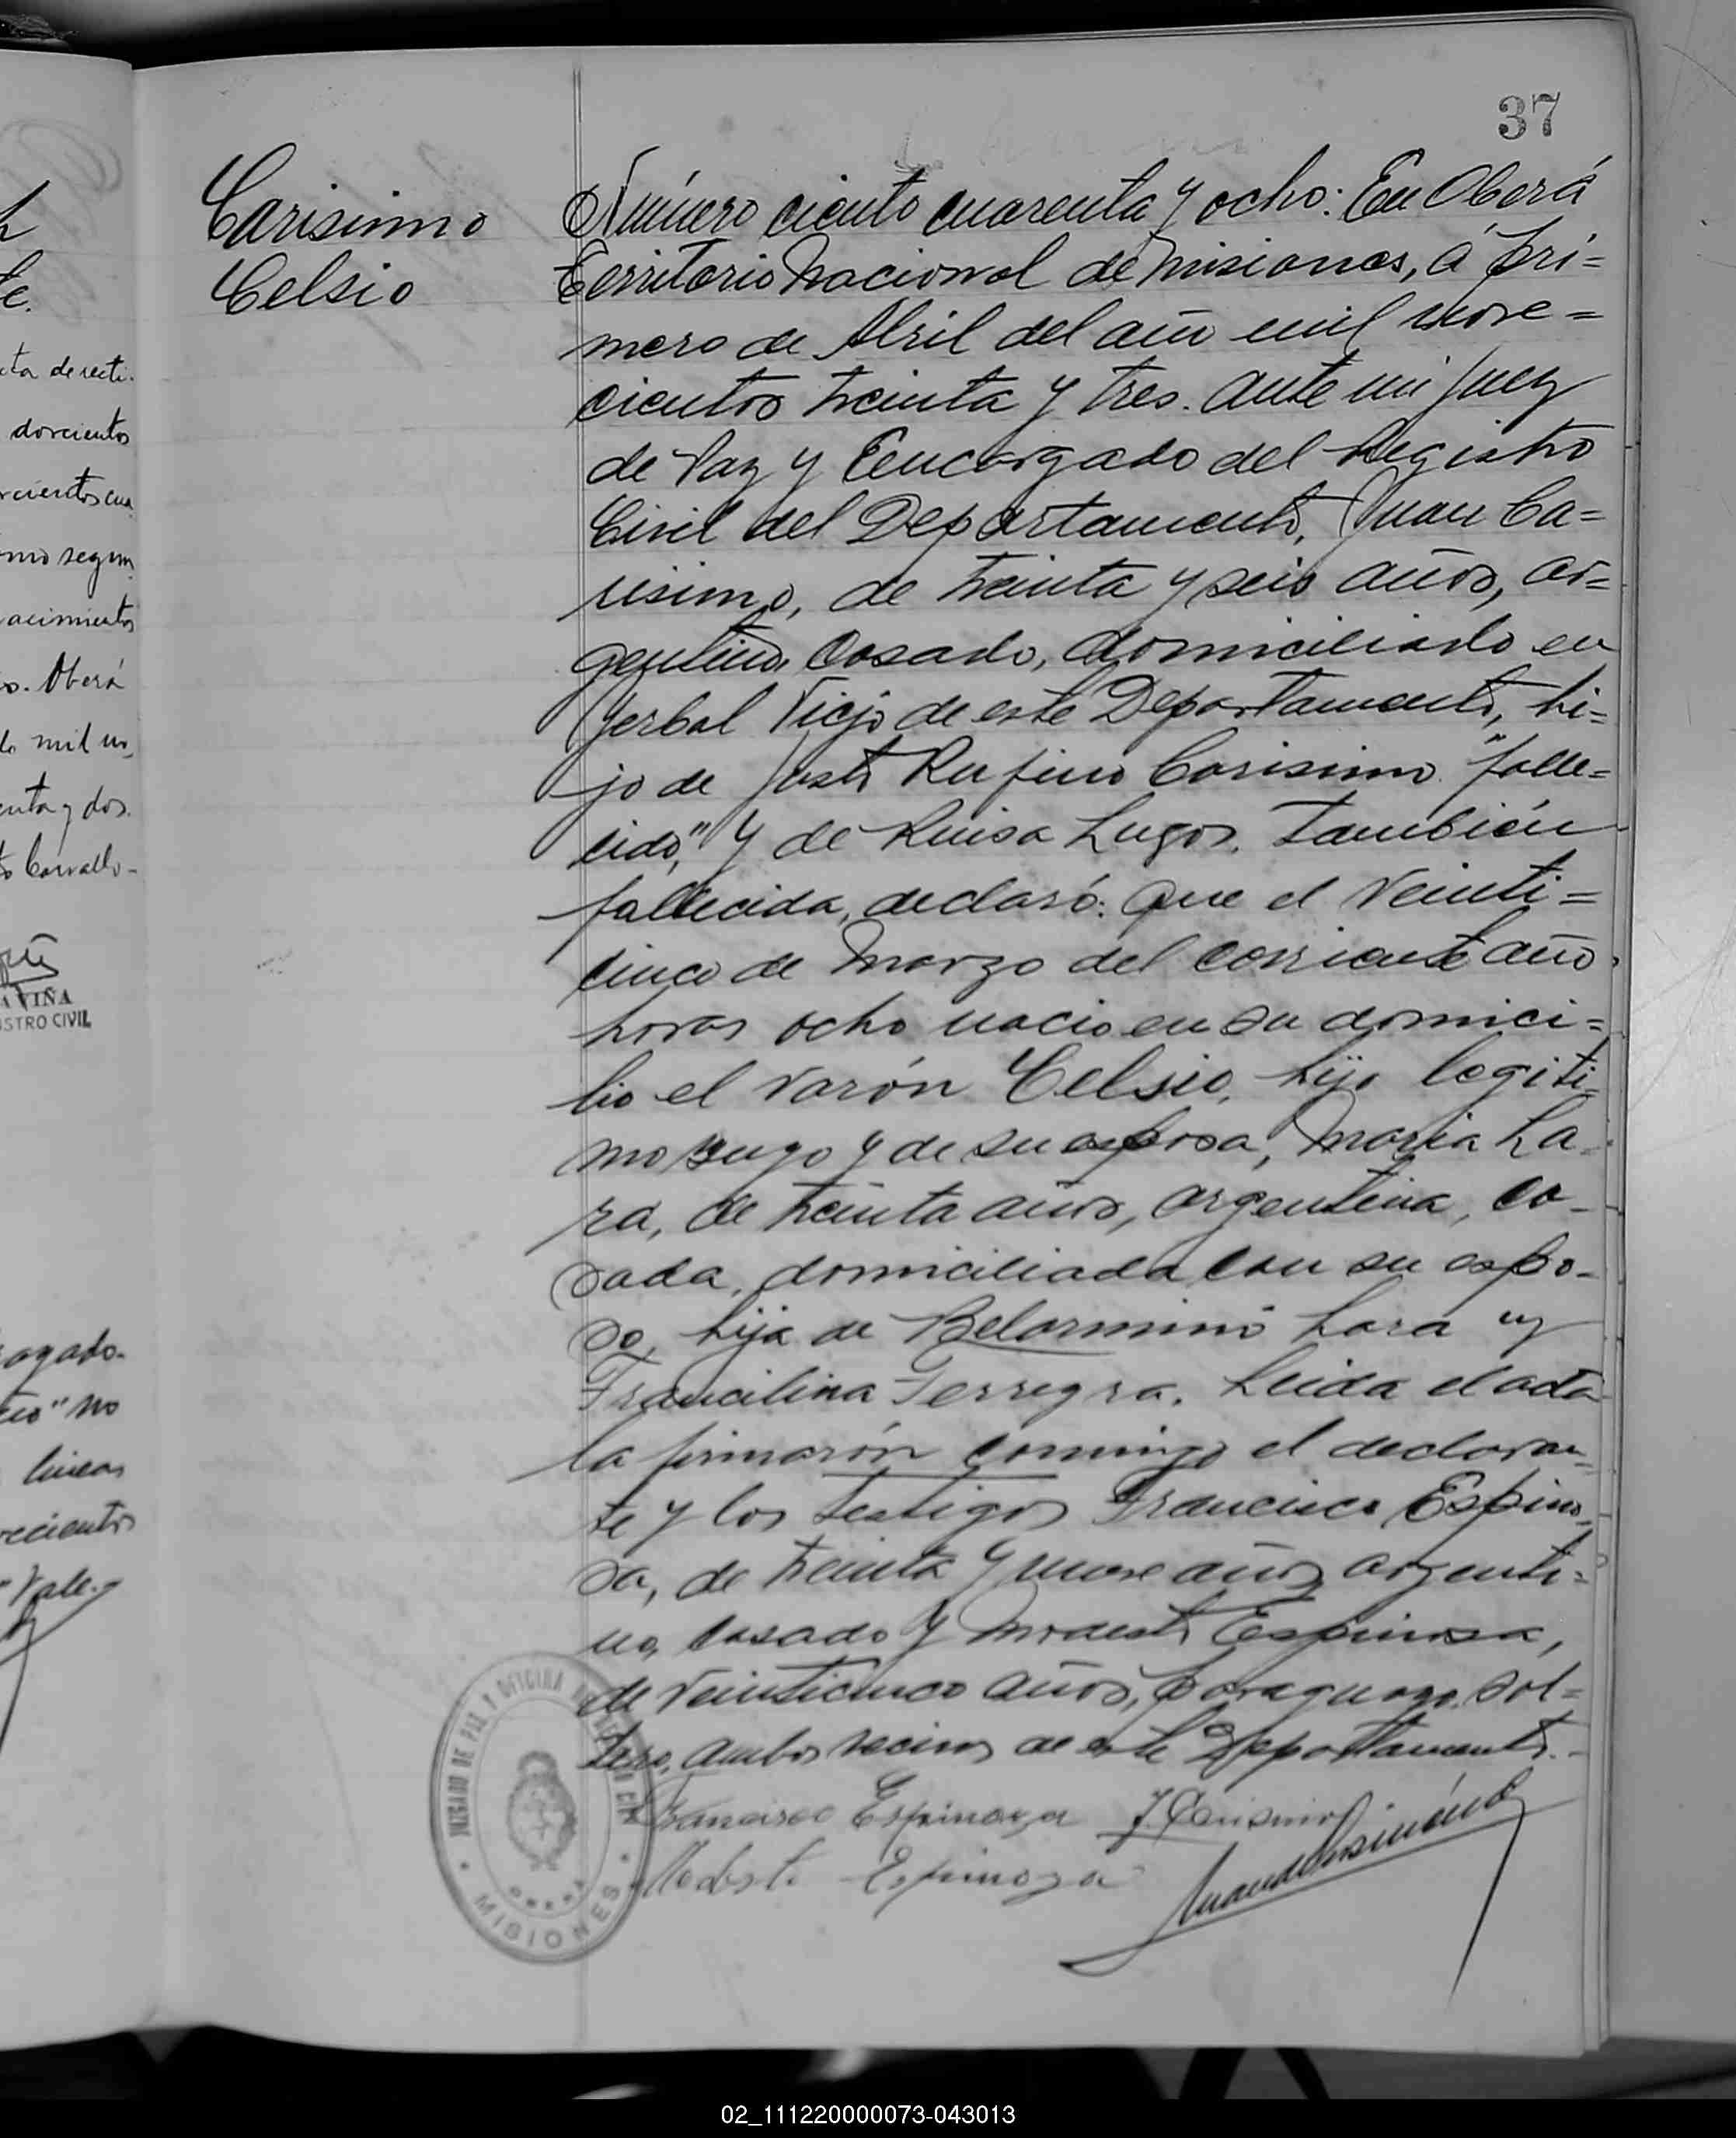 37
Carisimo
Celsio
Número ciento cuarenta y ocho: En Oberá
Territorio Nacional de Misiones, á pri=
mero de Abril del año mil nove=
cientos treinta y tres. Ante mi Juez
de Paz y Encargado del Registro
Civil del Departamento, Juan Ca=
risimo, de treinta y seis años, ar=
gentino, casado, domiciliado en
Yerbal Viejo de este Departamento, hi=
jo de Justo Rufino Carisimo "falle=
cido", y de Luisa Lugo, también
fallecida, declaró: Que el veinti=
cinco de Marzo del corriente año
horas ocho nació en su domici=
lio el varón Celsio, hijo legiti=
mo suyo y de su esposa, Maria La
ra, de treinta años, argentina, ca-
sada, domiciliada con su espo-
so, hija de Belarmino Lara y
Francilina Leida el acta
la firmarón conmigo el declaran
te y los testigos Francisco Espino
sa, de treinta y nueve años argenti=
no, casado y Modesto Espinosa,
de veinticinco años, paraguayo, sol=
tero, ambos vecinos de este Departamento.-
Francisco Espinoza J. Carisimo
Modesto Espinoza
JUZGADO DE PAZ Y OFICINA
MISIONES
ta de recti-
dorcientos
cientos cua
mo segun
acimientos
o. Oberá
mil no
enta y dos.
Carvallo-
A VIÑA
ISTRO CIVIL
no
lineas
Vale.-
02_111220000073-043013